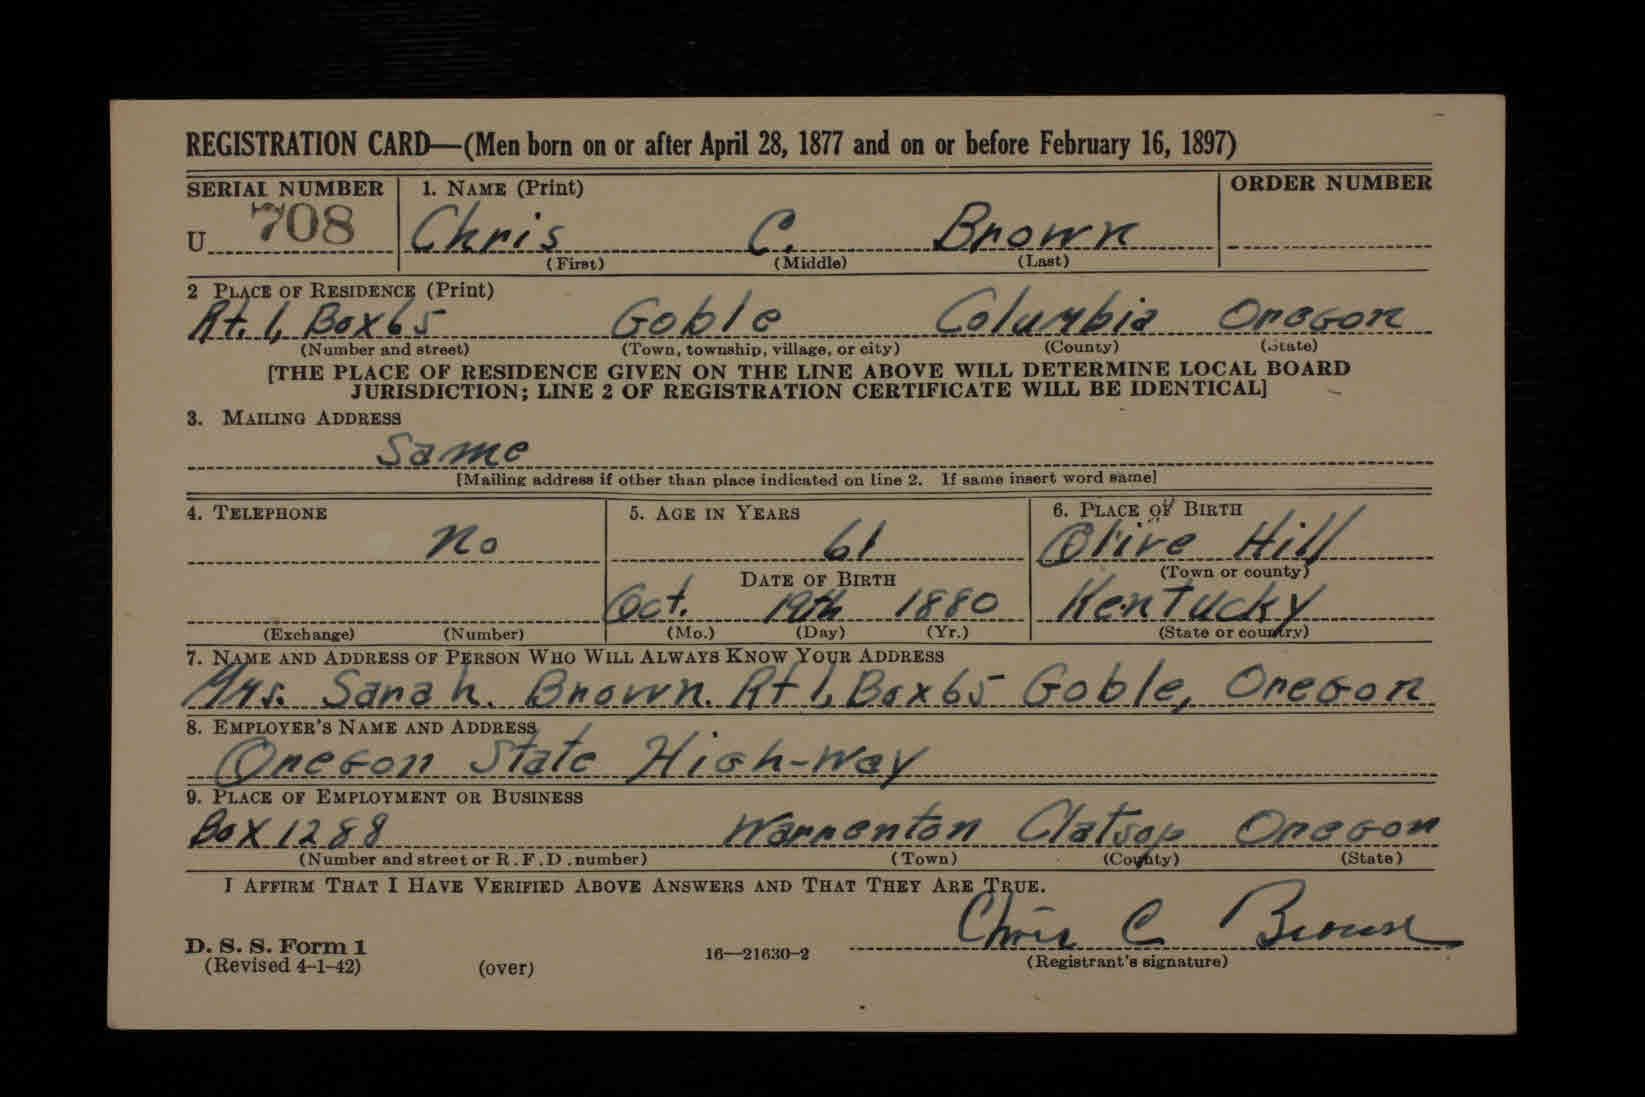 REGISTRATION CARD—(Men born on or after April 28, 1877 and on or before February 16, 1897)
SERIAL NUMBER 1. NAME (Print) ORDER NUMBER
U 708 Chris C. Brown
(First) (Middle) (Last)
2 PLACE OF RESIDENCE (Print)
Rt. 1, Box 65 Goble Columbia Oregon
(Number and street) (Town, township, village, or city) (County) (State)
[THE PLACE OF RESIDENCE GIVEN ON THE LINE ABOVE WILL DETERMINE LOCAL BOARD
JURISDICTION; LINE 2 OF REGISTRATION CERTIFICATE WILL BE IDENTICAL]
3. MAILING ADDRESS
Same
[Mailing address if other than place indicated on line 2. If same insert word same]
4. TELEPHONE 5. AGE IN YEARS 6. PLACE OF BIRTH
No 61 Olive Hill
DATE OF BIRTH (Town or county)
Oct. 19th 1880 Kentucky
(Exchange) (Number) (Mo.) (Day) (Yr.) (State or country)
7. NAME AND ADDRESS OF PERSON WHO WILL ALWAYS KNOW YOUR ADDRESS
Mrs. Sarah. Brown. Rt 1, Box 65 Goble, Oregon
8. EMPLOYER'S NAME AND ADDRESS
Oregon State High-way
9. PLACE OF EMPLOYMENT OR BUSINESS
Box 1288 Warrenton Clatsop Oregon
(Number and street or R.F.D. number) (Town) (County) (State)
I AFFIRM THAT I HAVE VERIFIED ABOVE ANSWERS AND THAT THEY ARE TRUE.
Chris C Brown
D. S. S. Form 1
(Revised 4-1-42) (over) 16—21630-2 (Registrant's signature)